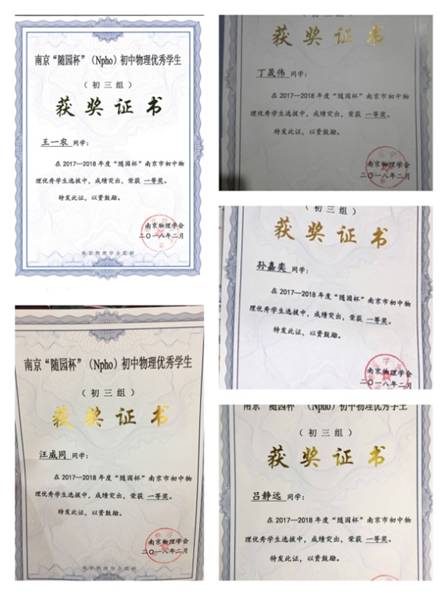 南京“随园杯”（Npho）初中物理优秀学生
（初三组）
获奖证书
王一农 同学：
在 2017—2018 年度“随园杯”南京市初中物
理优秀学生选拔中，成绩突出，荣获 一等奖。
特发此证，以资鼓励。
南京物理学会
二〇一八年二月
获奖证书
丁晟伟 同学：
在 2017—2018 年度“随园杯”南京市初中物
理优秀学生选拔中，成绩突出，荣获 一等奖。
特发此证，以资鼓励。
南京物理学会
二〇一八年二月
（初三组）
获奖证书
孙嘉奕 同学：
在 2017—2018 年度“随园杯”南京市初中物
理优秀学生选拔中，成绩突出，荣获 一等奖。
特发此证，以资鼓励。
南京物理学会
二〇一八年二月
南京“随园杯”（Npho）初中物理优秀学生
（初三组）
获奖证书
汪威同 同学：
在 2017—2018 年度“随园杯”南京市初中物
理优秀学生选拔中，成绩突出，荣获 一等奖。
特发此证，以资鼓励。
南京物理学会
二〇一八年二月
南京“随园杯”（Npho）初中物理优秀学生
（初三组）
获奖证书
吕静远 同学：
在 2017—2018 年度“随园杯”南京市初中物
理优秀学生选拔中，成绩突出，荣获 一等奖。
特发此证，以资鼓励。
南京物理学会
二〇一八年二月